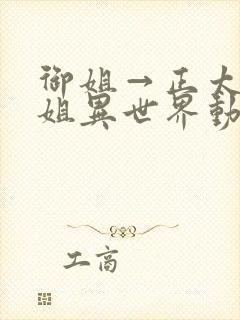 御姐→正太
姐異世界動
工商